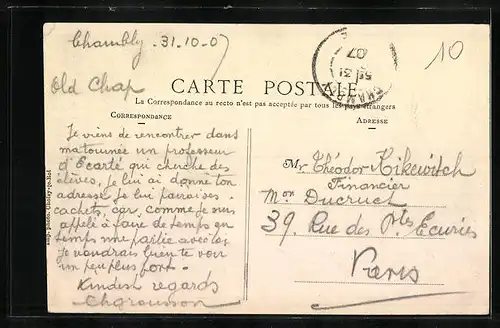 Chambly 31-10-07
10
Old Chap
CARTE POSTALE
La Correspondance au recto n'est pas acceptée par tous les pays étrangers
CORRESPONDANCE
ADRESSE
Je viens de rencontrer dans
ma tournée un professeur
d'Ecarté qui cherche des
élèves, je lui ai donné ton
adresse. Je lui
cachets, car, comme je suis
appelé à faire de temps en
temps une partie avec
Je voudrais bien te voir
un peu plus fort.
Kindest regards
Mr Théodor Kikewitch
Financier
Mon Ducruet
39, Rue des Ptes Ecuries
Paris